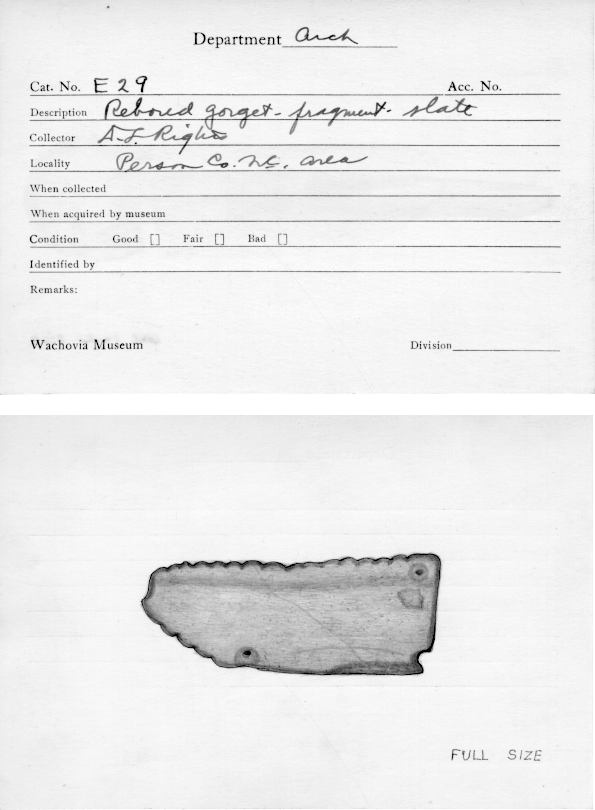 Department Arch
Cat. No. E 29 Acc. No.
Description Rebored gorget - fragment - slate
Collector D. L. Rights
Locality Person Co. N.C. area
When collected
When acquired by museum
Condition Good [] Fair [] Bad []
Identified by
Remarks:
Wachovia Museum Division
FULL SIZE